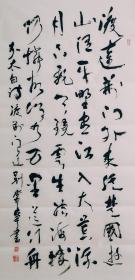 渡遠荆門外来從楚國遊
山隨平野盡江入大荒流
月下飛天鏡雲生結海樓
仍憐故鄉水万里送行舟
李太白詩渡荆門送别